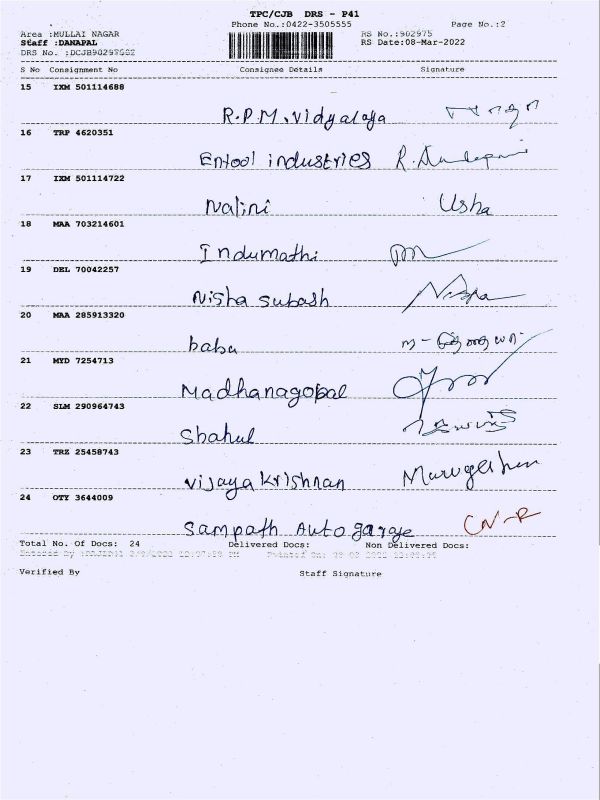 TPC/CJB DRS - P41
Phone No.:0422-3505555 Page No.:2
Area :MULLAI NAGAR RS No.:902975
Staff :DANAPAL RS Date:08-Mar-2022
DRS No. :DCJB902975
S No Consignment No Consignee Details Signature
15 IXM 501114688
R.P.M.Vidyalaya
16 TRP 4620351
Entool industries
17 IXM 501114722
Nalini Usha
18 MAA 703214601
Indumathi
19 DEL 70042257
Nisha subash Nisha
20 MAA 285913320
baba
21 MYD 7254713
Madhanagopal
22 SLM 290964743
Shahul
23 TRZ 25458743
Vijaya Krishnan Murugeshan
24 OTY 3644009
Sampath Auto garage CN-R
Total No. Of Docs: 24 Delivered Docs: Non Delivered Docs:
Verified By Staff Signature